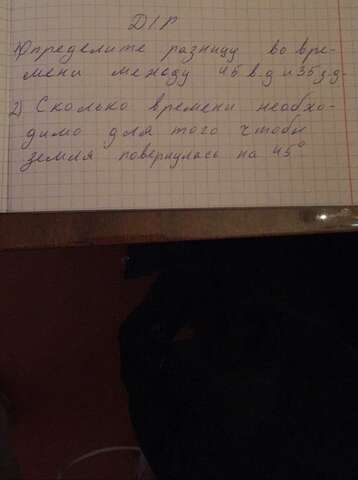 Д/Р
1) Определите разницу во вре-
мени между 45 в.д и 35 з.д.
2) Сколько времени необхо-
димо для того чтобы
земля повернулась на 45°